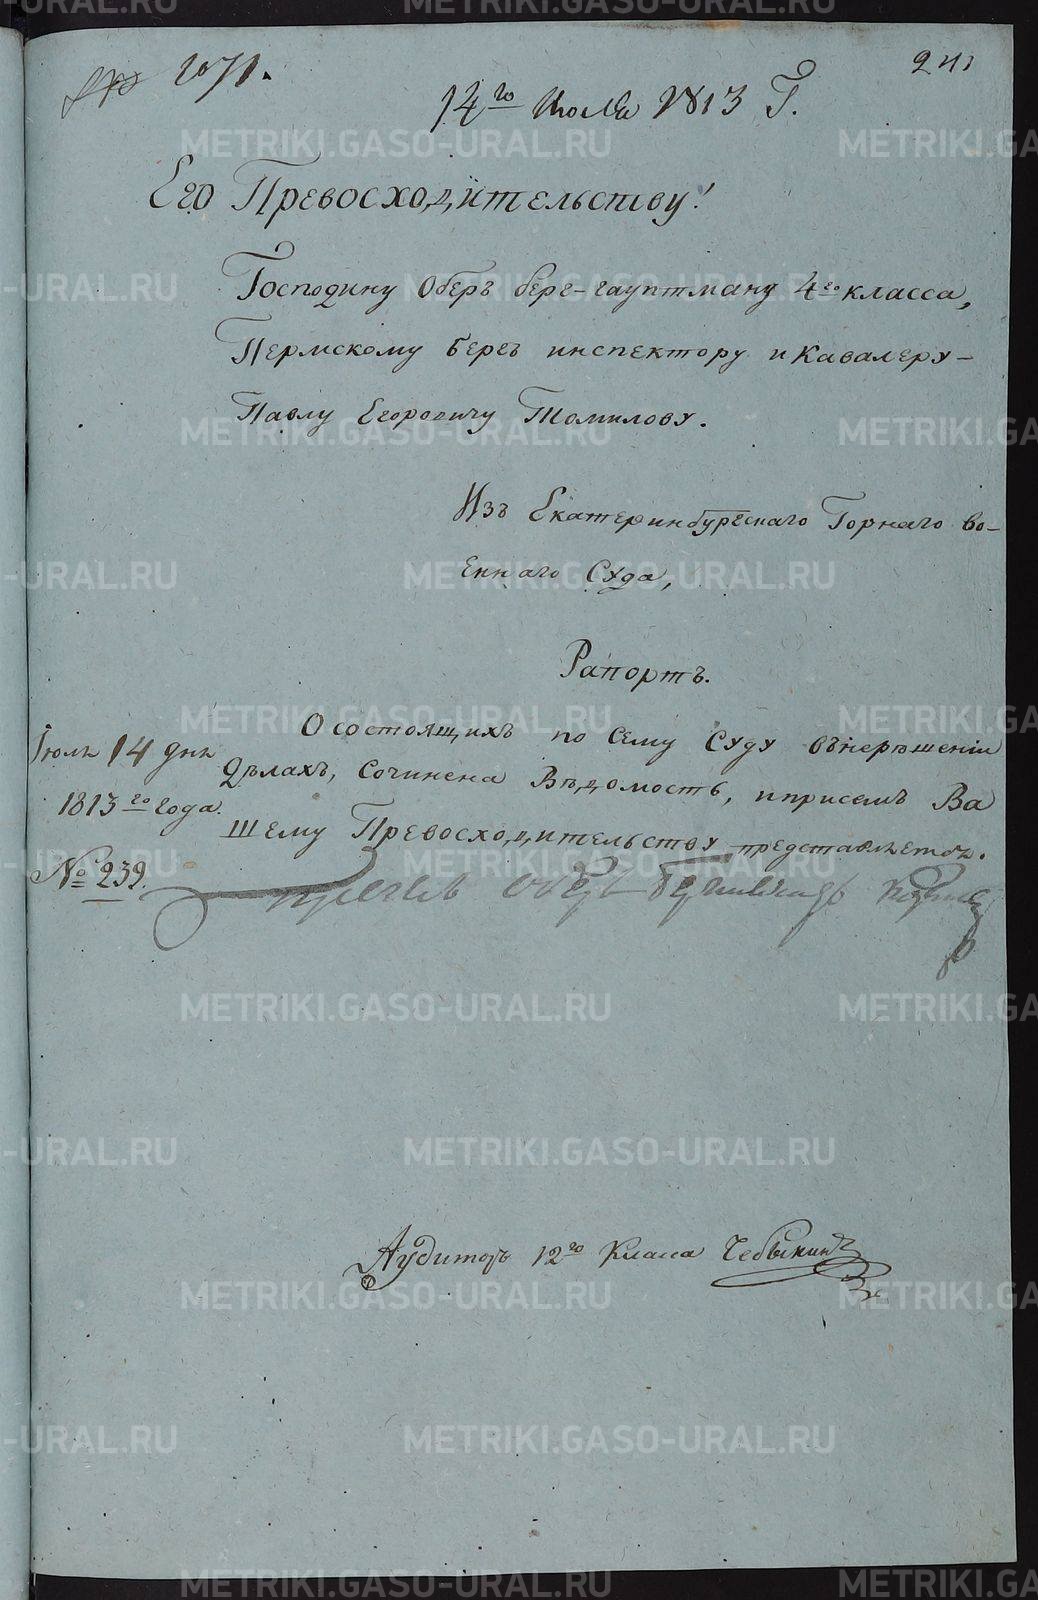 1071.
241
14го Июля 1813 Г.
Его Превосходительству!
Господину Оберъ берг-гауптману 4го класса,
Пермскому бергъ инспектору и Кавалеру-
Павлу Егоровичу Томилову.
Изъ Екатеринбургскаго Горнаго во-
еннаго Суда,
Рапортъ.
О состоящихъ по сему Суду внерешении
Июля 14 дня
делахъ, сочинена Ведомость, и присемъ Ва
1813го года.
шему Превосходительству представляется.
№ 239.
Оберъ
Аудиторъ 12го класса Чебыкинъ
METRIKI.GASO-URAL.RU